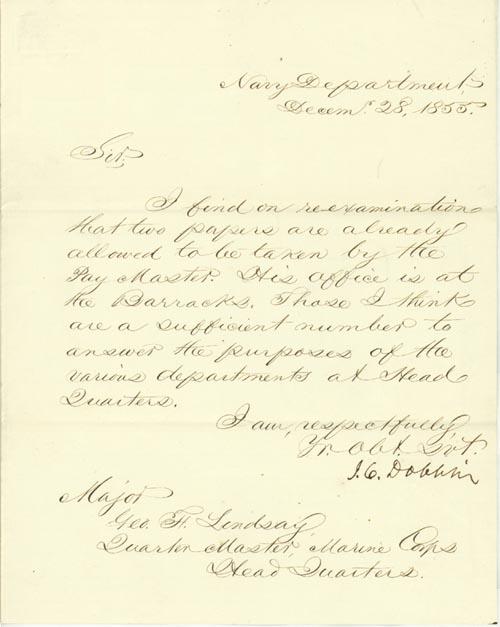 Navy Department,
Decemr. 28, 1855.
Sir,
I find on re-examination
that two papers are already
allowed to be taken by the
Pay Master. His office is at
the Barracks. Those I think
are a sufficient number to
answer the purposes of the
various departments at Head
Quarters.
I am, respectfully
Yr. Obt. Svt.
J. C. Dobbin
Major
Geo. F. Lindsay
Quarter Master, Marine Corps
Head Quarters.